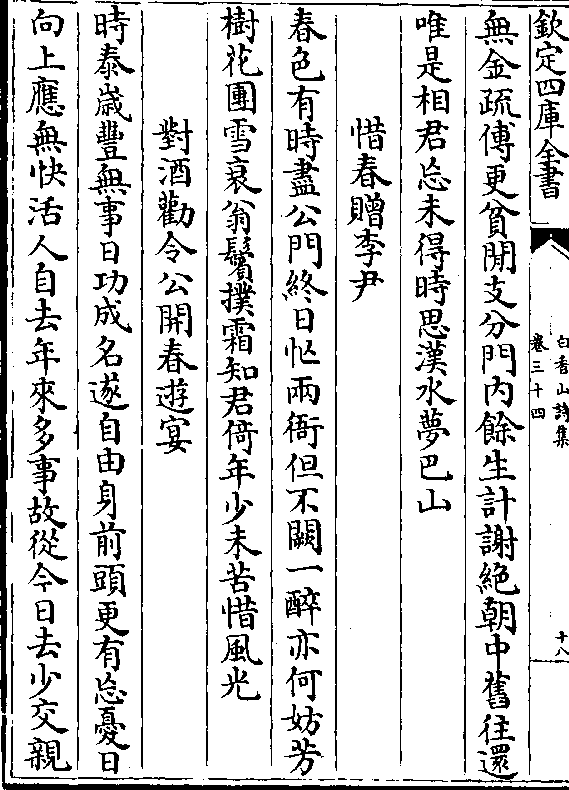 欽定四庫全書
白香山詩集
卷三十四
十八
無金疏傅更貧閒支分門内餘生計謝絶朝中舊往還
唯是相君忘未得時思漢水夢巴山
惜春贈李尹
春色有時盡公門終日忙兩衙但不闕一醉亦何妨芳
樹花團雪衰翁鬢撲霜知君倚年少未苦惜風光
對酒勸令公開春遊宴
時泰嵗豐無事日功成名遂自由身前頭更有忘憂日
向上應無快活人自去年來多事故從今日去少交親